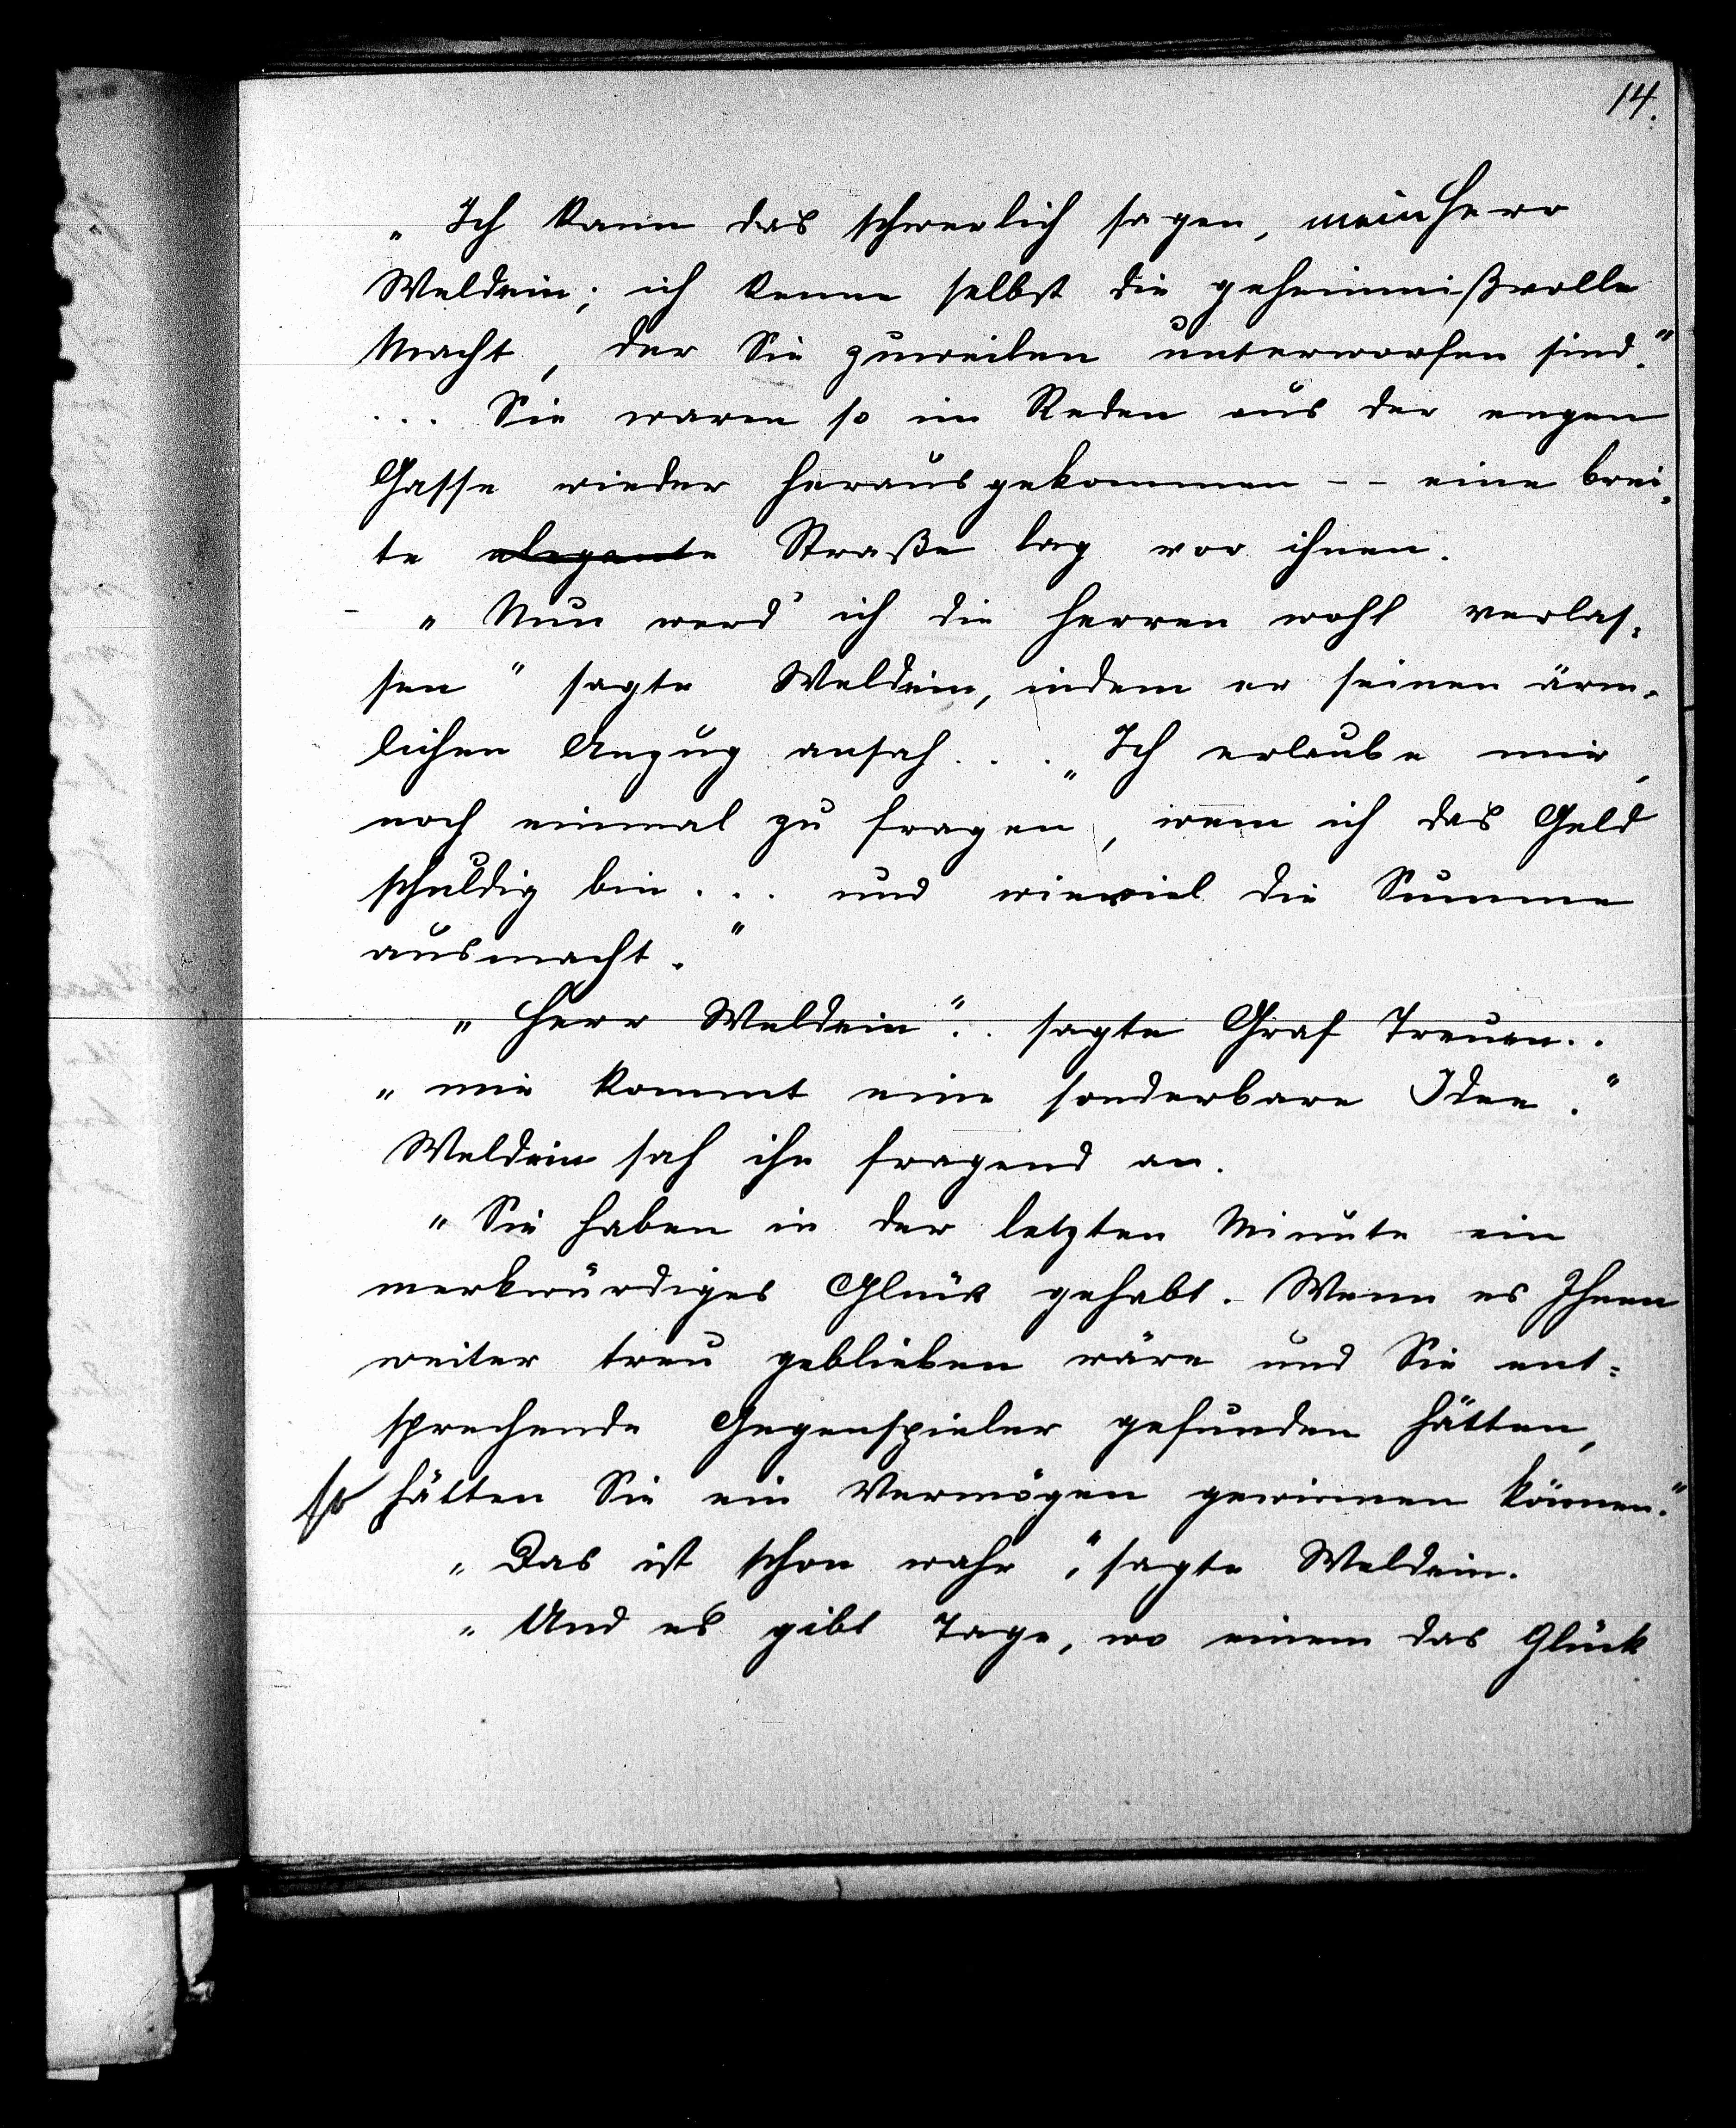 14.
„Ich kann das schwerlich sagen, mein Herr
Weldein; ich kenne selbst die geheimnißvolle
Macht, der Sie zuweilen unterworfen sind."
... Sie waren so im Reden aus der engen
Gasse wieder herausgekommen -- eine brei-
te elegante Straße lag vor ihnen.
„Nun werd' ich die Herren wohl verlas-
sen" sagte Weldein, indem er seinen ärm-
lichen Anzug ansah... „Ich erlaube mir,
noch einmal zu fragen, wem ich das Geld
schuldig bin... und wieviel die Summe
ausmacht."
„Herr Weldein".. sagte Graf Treuen..
„mir kommt eine sonderbare Idee."
Weldein sah ihn fragend an.
„Sie haben in der letzten Minute ein
merkwürdiges Glück gehabt. Wenn es Ihnen
weiter treu geblieben wäre und Sie ent-
sprechende Gegenspieler gefunden hätten,
so hätten Sie ein Vermögen gewinnen können."
„Das ist schon wahr," sagte Weldein.
„Und es gibt Tage, wo einem das Glück